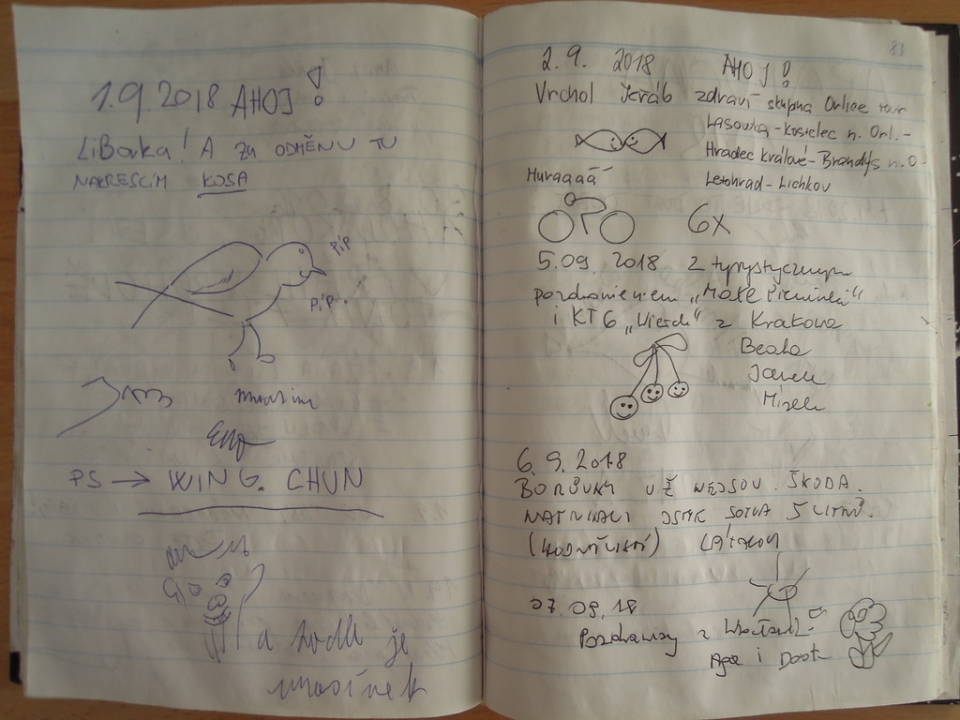 1.9.2018 AHOJ!
LiBovka! A za ODMĚNU TU
NAKRESLÍM KOSA
PíP
PíP.
PS → WING. CHUN
a tohle je
mravínek
83
2.9. 2018 AHOJ!
Vrchol Jeřáb zdraví skupina Orlice tour
Lasovka-Kostelec n. Orl.-
Hradec Králové-Brandýs n.O-
Letohrad-Lichkov
Huraááá
6x
5.09. 2018 Z turystycznym
pozdrowieniem „Małe Pieninki"
i KTG „Wierch" z Krakowa
Beata
Jarek
6.9.2018
BORŮVKY UŽ NEJSOU. ŠKODA.
NATRHALI JSME SOTVA 5 LITRŮ.
07.09.18
Pozdrawiamy z
Aga i